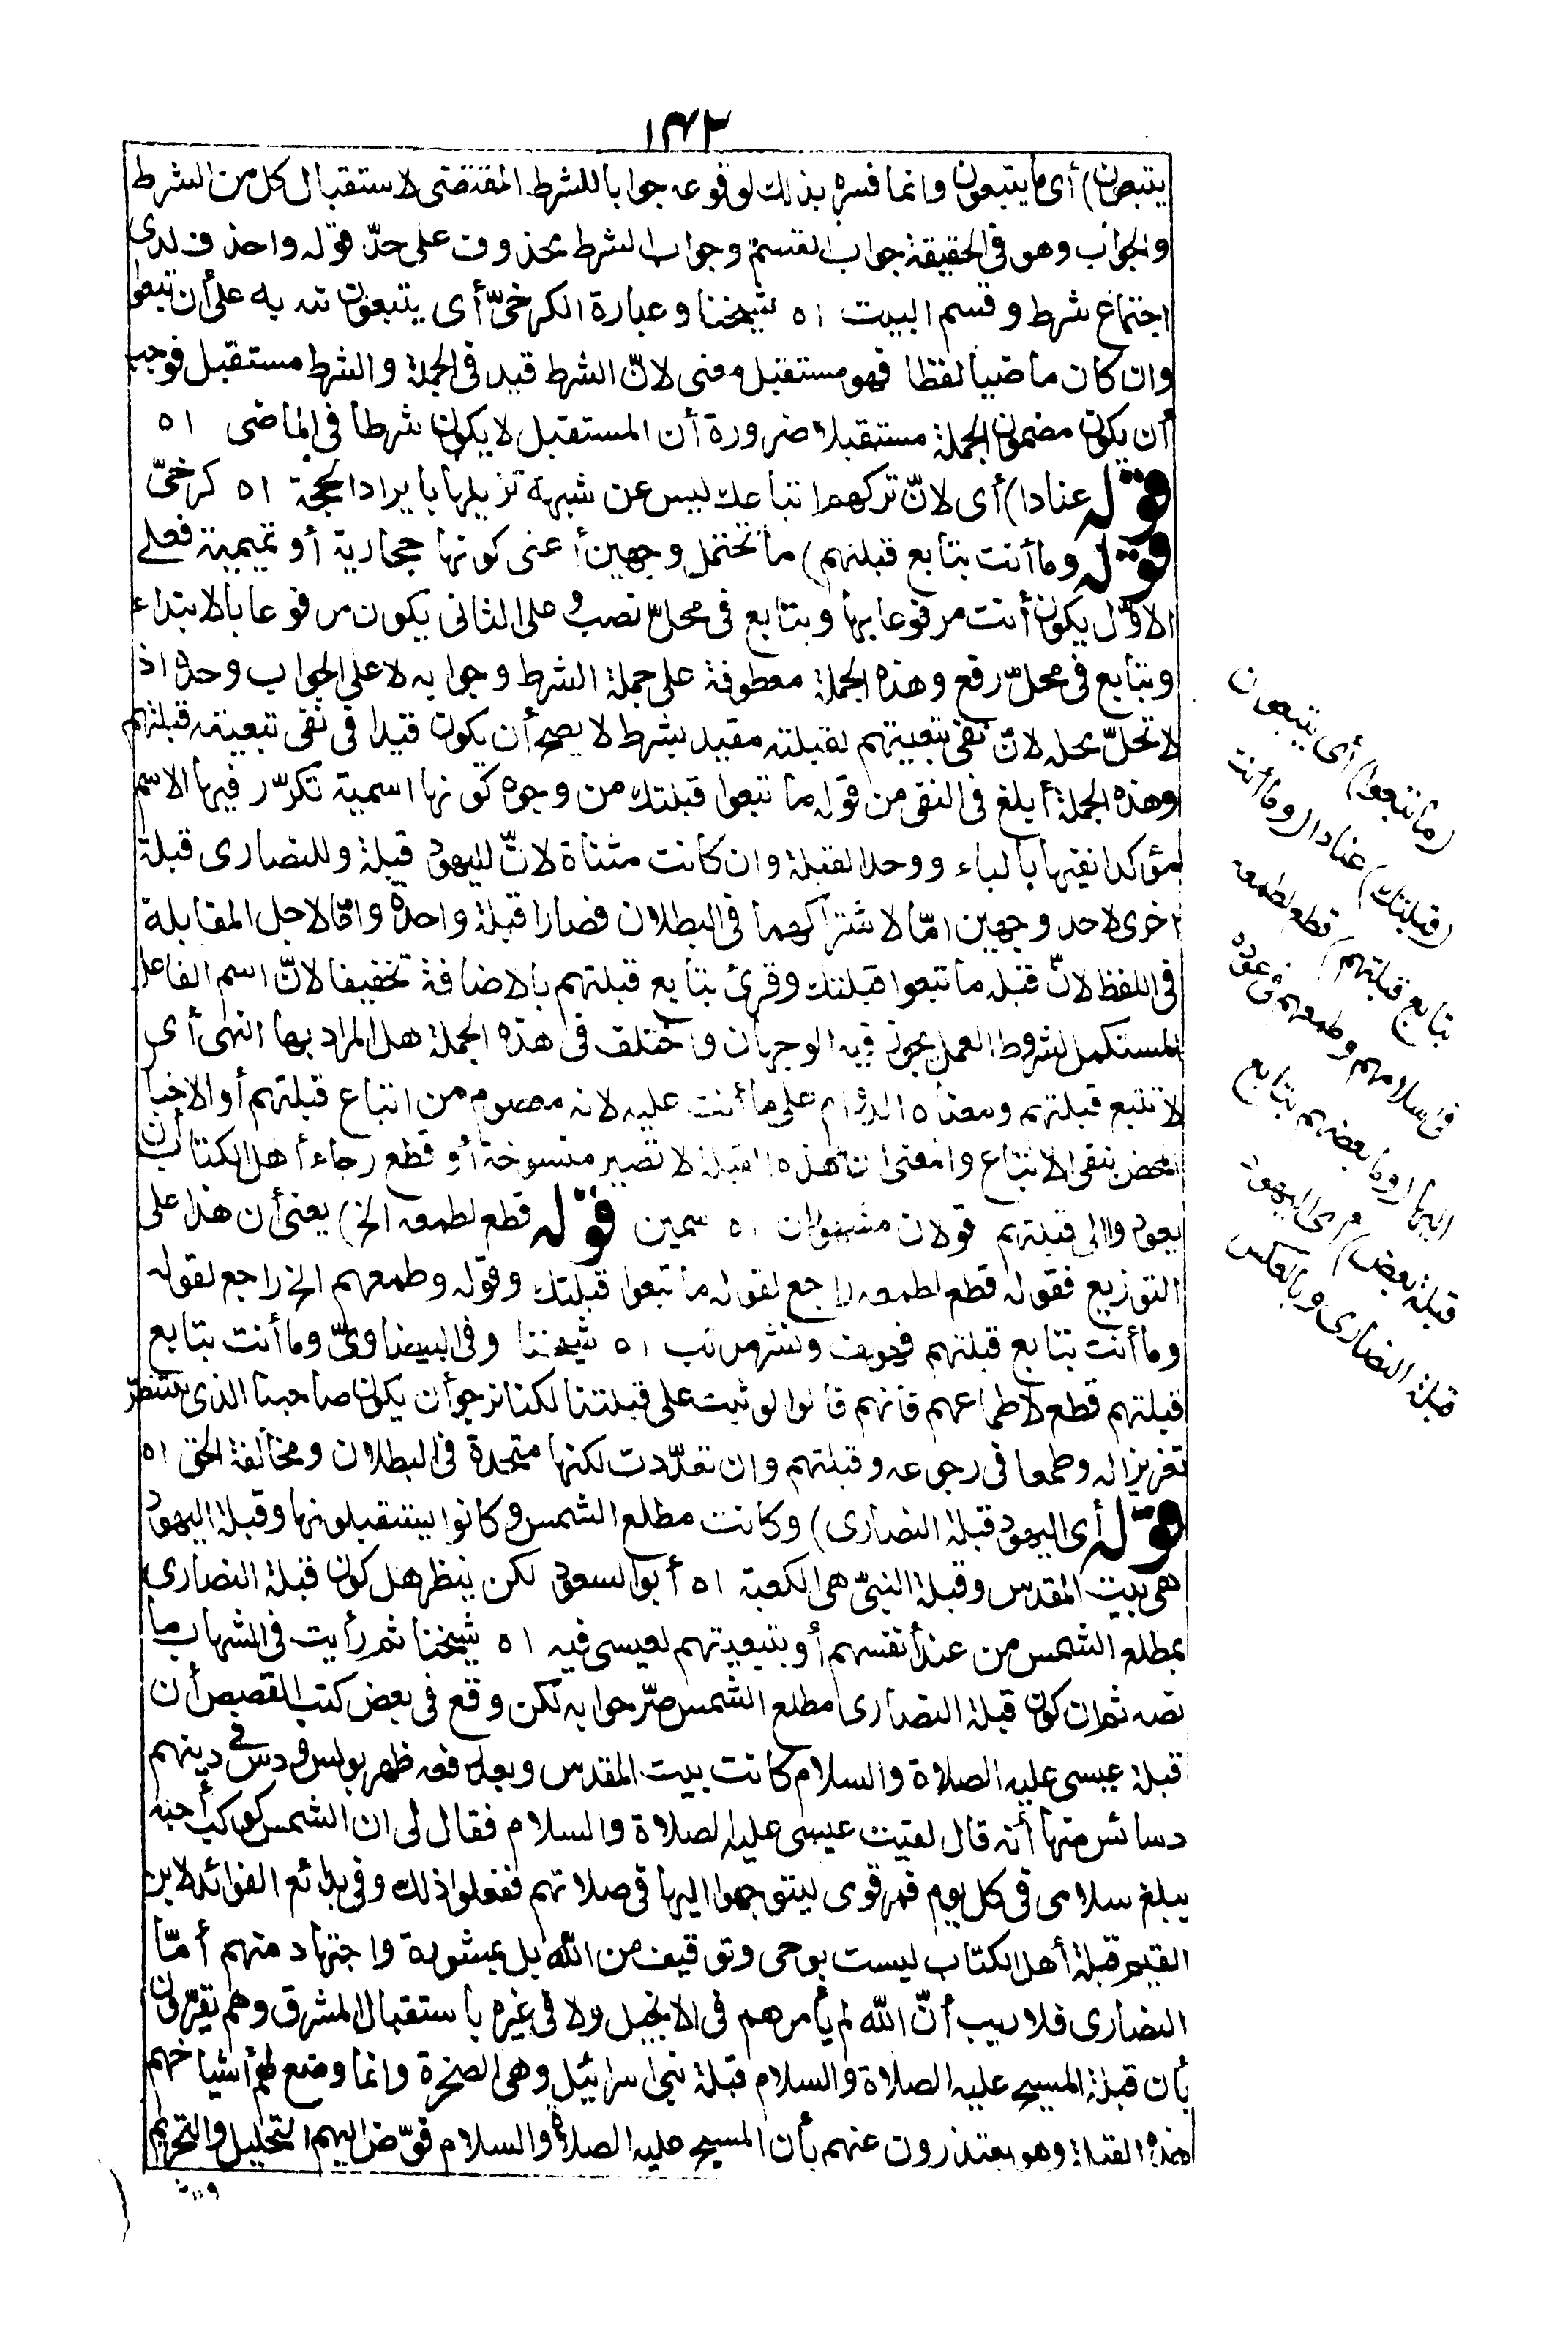 ١٤٢
يتبعون) أى ما يتبعون وانما فسره بذلك لوقوعه جوابا للشرط المقتضى لاستقبال كل من الشرط
والجواب وهو فى الحقيقة جواب القسم وجواب الشرط محذوف على حدّ قوله واحذف لدى
اجتماع شرط وقسم البيت اه شيخنا وعبارة الكرخىّ أى يتبعون نبه به على أن تبعوا
وان كان ماضيا لفظا فهو مستقبل معنى لانّ الشرط قيد فى الجملة والشرط مستقبل فوجب
أن يكون مضمون الجملة مستقبلا ضرورة أن المستقبل لا يكون شرطا فى الماضى اه
قوله عنادا) أى لانّ تركهم اتباعك ليس عن شبهة تزيلها بايراد الحجة اه كرخىّ
قوله وما أنت بتابع قبلتهم) ما تحتمل وجهين أعنى كونها حجازية أو تميمية فعلى
الاوّل يكون أنت مرفوعا بها وبتابع فى محلّ نصب وعلى الثانى يكون مرفوعا بالابتداء
وبتابع فى محلّ رفع وهذه الجملة معطوفة على جملة الشرط وجوابه لا على الجواب وحده اذ
لا تحلّ محله لانّ نفى تبعيتهم لقبلته مقيد بشرط لا يصح أن يكون قيدا فى نفى تبعيته قبلتهم
وهذه الجملة أبلغ فى النفى من قوله ما تبعوا قبلتك من وجوه كونها اسمية تكرّر فيها الاسم
مؤكدا نفيها بالباء ووحد القبلة وان كانت مثناة لانّ لليهود قبلة وللنصارى قبلة
اخرى لاحد وجهين امّا لاشتراكهما فى البطلان فصارا قبلة واحدة وامّا لاجل المقابلة
فى اللفظ لانّ قبله ما تبعوا قبلتك وقرئ بتابع قبلتهم بالاضافة تخفيفا لانّ اسم الفاعل
المستكمل لشروط العمل يجوز فيه الوجهان واختلف فى هذه الجملة هل المراد بها النهى أى
لا تتبع قبلتهم ومعناه الدوام على ما أنت عليه لانه معصوم من اتباع قبلتهم أو الاخبار
المحض بنفى الاتباع والمعنى انّ هذه القبلة لا تصير منسوخة أو قطع رجاء أهل الكتاب أن
يعودوا الى قبلتهم قولان مشهوران اه سمين قوله قطع لطمعه الخ) يعنى أن هذا على
التوزيع فقوله قطع لطمعه راجع لقوله ما تبعوا قبلتك وقوله وطمعهم الخ راجع لقوله
وما أنت بتابع قبلتهم فهو لف ونشر مرتب اه شيخنا وفى البيضاوىّ وما أنت بتابع
قبلتهم قطع لاطماعهم فانهم قالوا لو ثبت على قبلتنا لكنا نرجو أن يكون صاحبنا الذى ننتظره
تغريرا له وطمعا فى رجوعه وقبلتهم وان تعدّدت لكنها متحدة فى البطلان ومخالفة الحق اه
قوله أى اليهود قبلة النصارى) وكانت مطلع الشمس وكانوا يستقبلونها وقبلة اليهود
هى بيت المقدس وقبلة النبىّ هى الكعبة اه أبو السعود لكن ينظر هل كون قبلة النصارى
بمطلع الشمس من عند أنفسهم أو بتبعيتهم لعيسى فيه اه شيخنا ثم رأيت فى الشهاب ما
نصه ثم ان كون قبلة النصارى مطلع الشمس صرّحوا به لكن وقع فى بعض كتب القصص أن
قبلة عيسى عليه الصلاة والسلام كانت بيت المقدس وبعد رفعه ظهر بولس ودس فى دينهم
دسائس منها أنه قال لقيت عيسى عليه الصلاة والسلام فقال لى ان الشمس كوكب أحبه
يبلغ سلامى فى كل يوم فمر قومى ليتوجهوا اليها فى صلاتهم ففعلوا ذلك وفى بدائع الفوائد لابن
القيم قبلة أهل الكتاب ليست بوحى وتوقيف من الله بل بمشورة واجتهاد منهم أمّا
النصارى فلا ريب أنّ الله لم يأمرهم فى الانجيل ولا فى غيره باستقبال المشرق وهم يقرّون
بأن قبلة المسيح عليه الصلاة والسلام قبلة بنى اسرائيل وهى الصخرة وانما وضع لهم أشياخهم
هذه القبلة وهم يعتذرون عنهم بأن المسيح عليه الصلاة والسلام فوّض اليهم التحليل والتحريم
(ما تبعوا) أى يتبعون
(قبلتك) عنادا (وما أنت
بتابع قبلتهم) قطع لطمعه
فى اسلامهم وطمعهم فى عوده
اليها (وما بعضهم بتابع
قبلة بعض) أى اليهود
قبلة النصارى وبالعكس